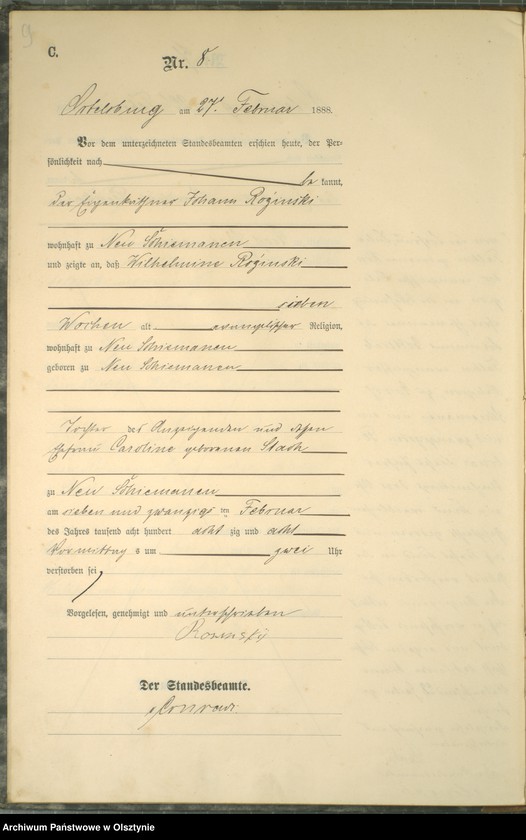 9
C.
Nr. 8
Ortelsburg am 27. Februar 1888.
Vor dem unterzeichneten Standesbeamten erschien heute, der Per-
sönlichkeit nach
be kannt,
der Eigenkäthner Johann Roginski
wohnhaft zu Neu Schiemanen
und zeigte an, daß Wilhelmine Roginski
sieben
Wochen alt evangelischer Religion,
wohnhaft zu Neu Schiemanen
geboren zu Neu Schiemanen
Tochter des Anzeigenden und dessen
Ehefrau Caroline geborenen Stach
zu Neu Schiemanen
am sieben und zwanzigs ten Februar
des Jahres tausend acht hundert acht zig und acht
Vormittag s um zwei Uhr
verstorben sei,
Vorgelesen, genehmigt und unterschrieben
Der Standesbeamte.
Conrad
Archiwum Państwowe w Olsztynie